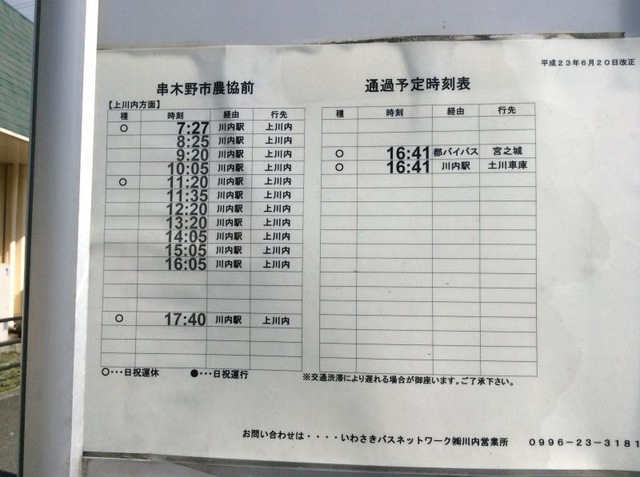 平成23年6月20日改正
串木野市農協前 通過予定時刻表
【上川内方面】
種 時刻 経由 行先 種 時刻 経由 行先
○ 7:27 川内駅 上川内
8:25 川内駅 上川内
9:20 川内駅 上川内 ○ 16:41 都バイパス 宮之城
10:05 川内駅 上川内 ○ 16:41 川内駅 土川車庫
○ 11:20 川内駅 上川内
11:35 川内駅 上川内
12:20 川内駅 上川内
13:20 川内駅 上川内
14:05 川内駅 上川内
15:05 川内駅 上川内
16:05 川内駅 上川内
○ 17:40 川内駅 上川内
○・・・日祝運休 ●・・・日祝運行
※交通渋滞により遅れる場合が御座います。ご了承下さい。
お問い合わせは・・・・いわさきバスネットワーク㈱川内営業所 0996-23-3181